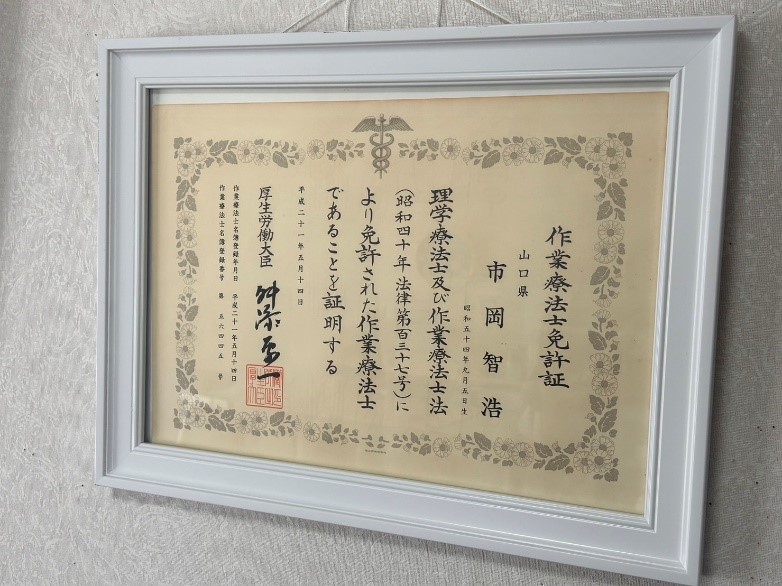 作業療法士免許証
山口県
市岡智浩
昭和五十四年九月五日生
理学療法士及び作業療法士法
(昭和四十年法律第百三十七号)に
より免許された作業療法士
であることを証明する
平成二十一年五月十四日
厚生労働大臣 舛添要一
作業療法士名簿登録年月日 平成二十一年五月十四日
作業療法士名簿登録番号 第 五六四四五 号